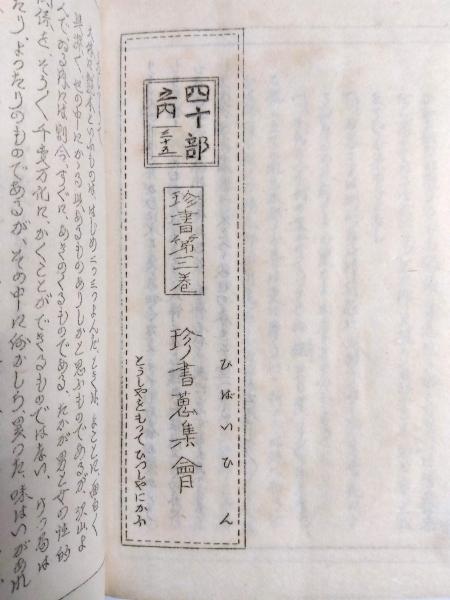 四十部
之内 三十五
珍書第三巻
ひばいひん
珍書蒐集會
とうしやをもつてひつしやにかふ
といふものは、はじめ二つ三つよんだときは、まことに、面白く
興深く、世の中にかゝる興あるものありしかと思ふものであるが、沢山よ
んでゐる内には、すぐに、あきのくるものである。たかが男と女の性的
関係を、そう〱千変万化に、かくことができるものではない、けつ局は
たり、よつたりのものであるが、その中に何かしら、異つた、味はいがあれ